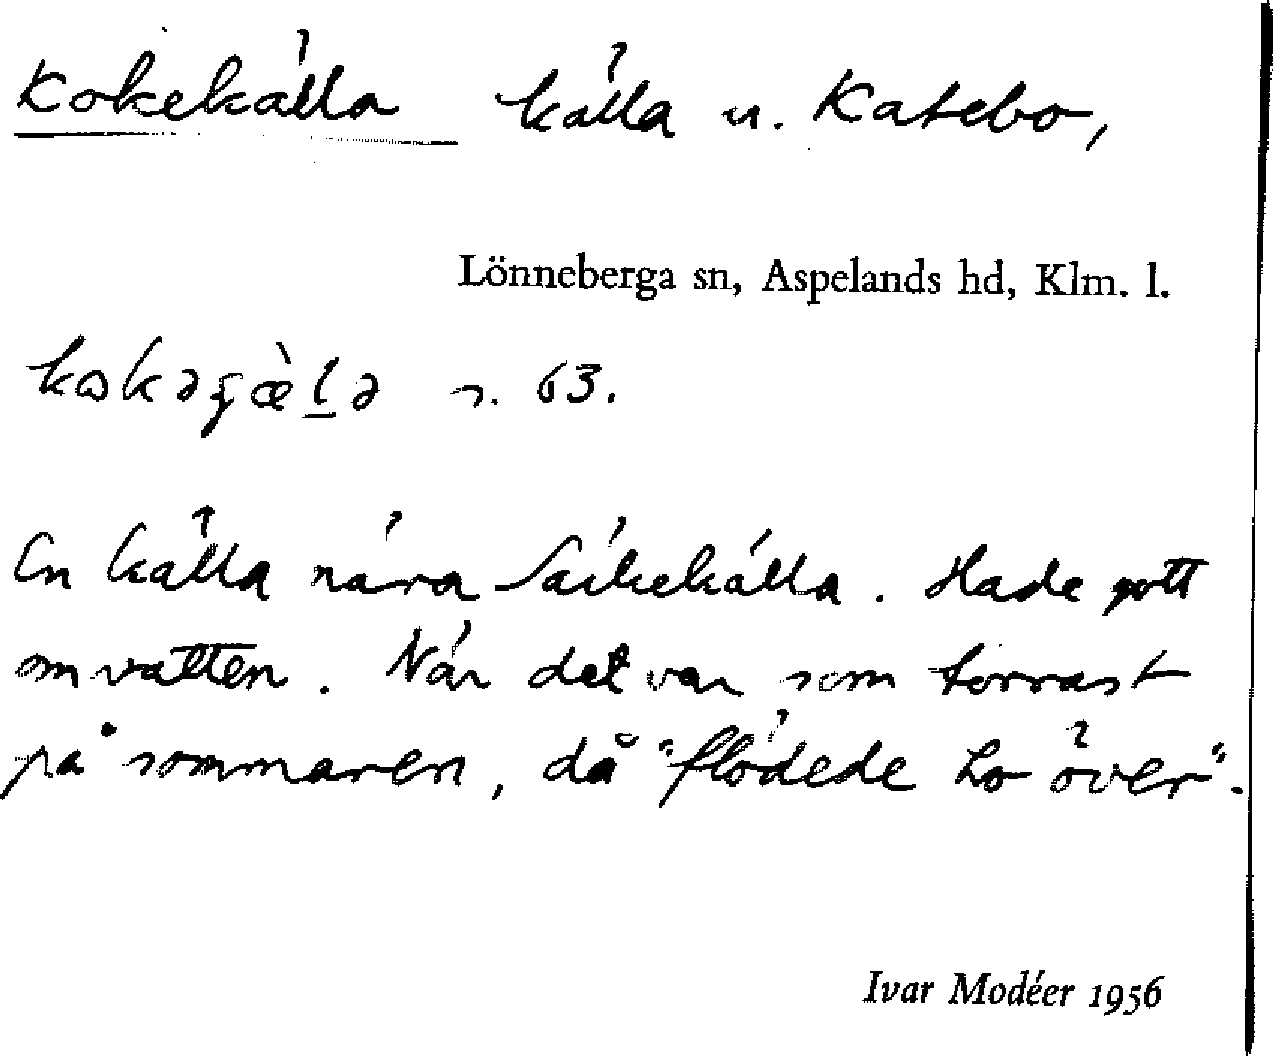 Kokekälla källa u. Katebo,
Lönneberga sn, Aspelands hd, Klm. l.
s. 63.
En källa nära Säikekälla. Hade gott
om vatten. När det var som torrast
på sommaren, då "flödede ho över".
Ivar Modéer 1956